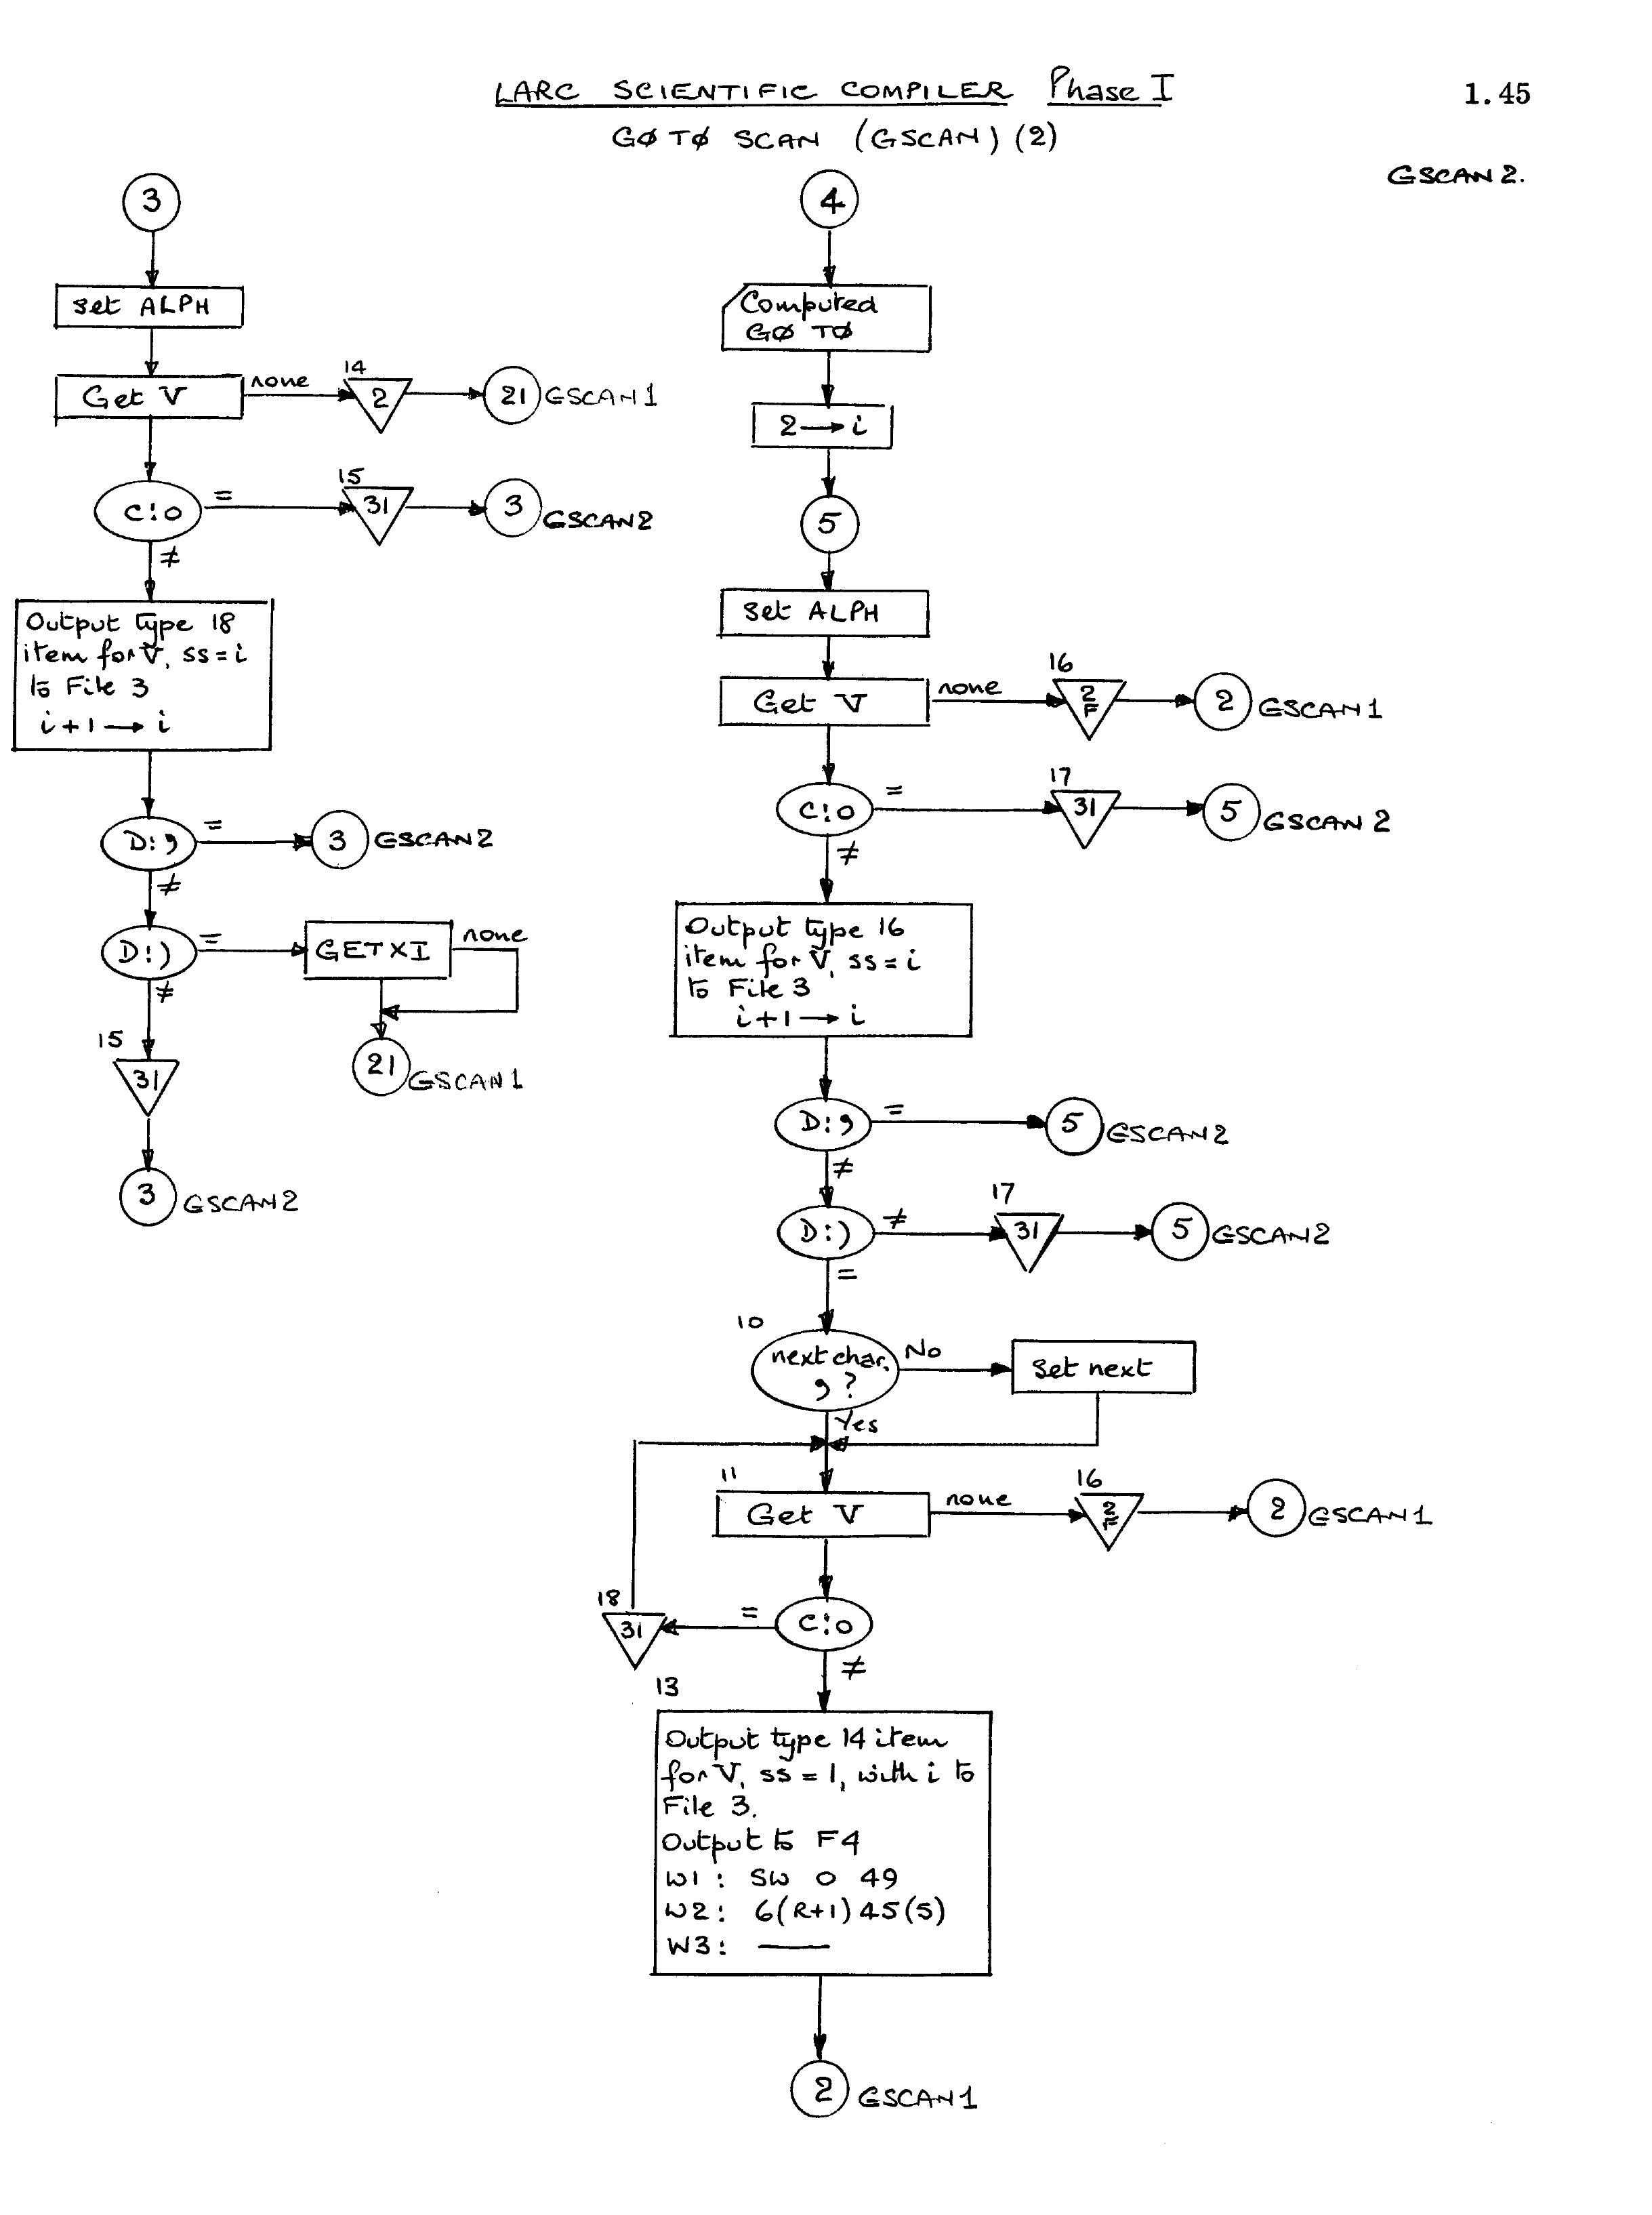 LARC SCIENTIFIC COMPILER Phase I
1.45
GØ TØ SCAN (GSCAN) (2)
GSCAN 2.
3
Set ALPH
Get V
none
14
2
21
GSCAN 1
C:0
=
15
31
3
GSCAN2
≠
Output type 18
item for V, ss = i
to File 3
i+1 → i
D: ,
=
3
GSCAN2
≠
D:)
=
GETXI
none
21
GSCAN 1
≠
15
31
3
GSCAN2
4
Computed
GØ TØ
2 → i
5
Set ALPH
Get V
none
16
2
F
2
GSCAN 1
C:0
=
17
31
5
GSCAN 2
≠
Output type 16
item for V, ss = i
to File 3
i+1 → i
D: ,
=
5
GSCAN2
≠
D:)
≠
17
31
5
GSCAN2
=
10
next char.
, ?
No
Set next
Yes
11
Get V
none
16
2
F
2
GSCAN 1
C:0
=
18
31
≠
13
Output type 14 item
for V, ss = 1, with i to
File 3.
Output to F4
W1: SW 0 49
W2: 6(R+1)45(5)
W3: ——
2
GSCAN 1